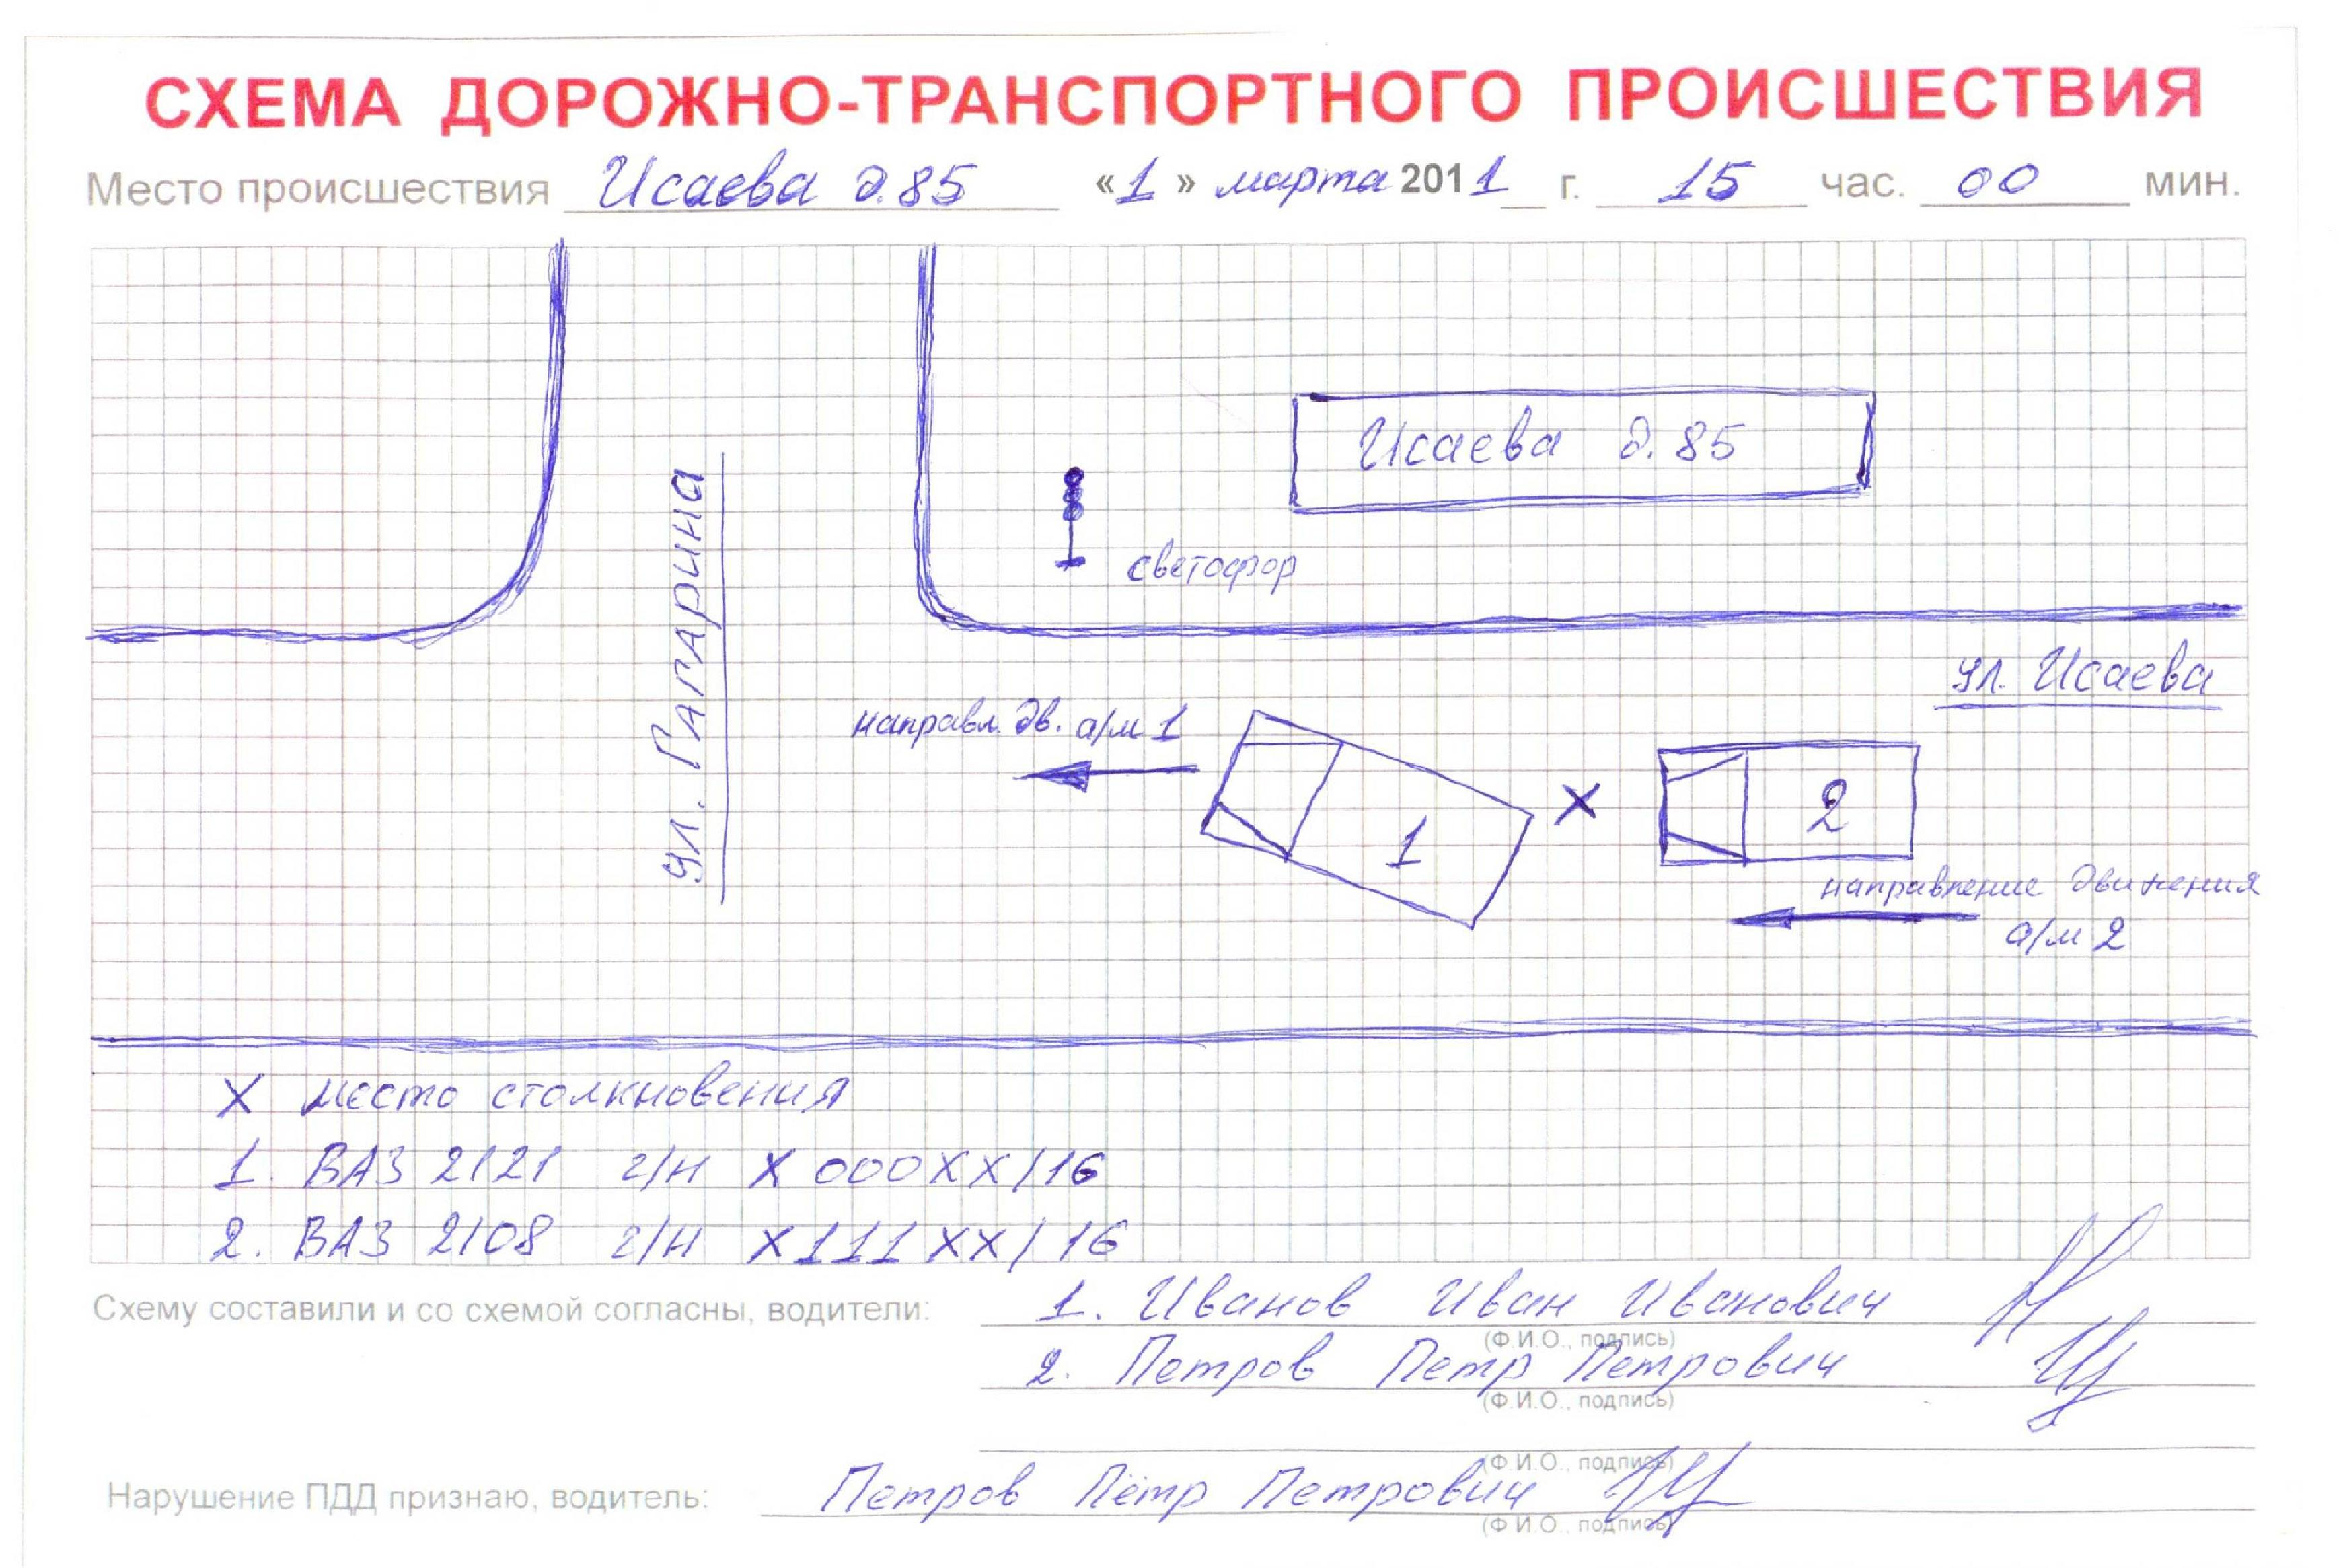 СХЕМА ДОРОЖНО-ТРАНСПОРТНОГО ПРОИСШЕСТВИЯ
Место происшествия Исаева д.85 «1» марта 2011 г. 15 час. 00 мин.
Исаева д.85
светофор
ул. Гагарина
ул. Исаева
направл. дв. а/м 1
1
X
2
направление движения
а/м 2
X место столкновения
1. ВАЗ 2121 г/н Х000ХХ/16
2. ВАЗ 2108 г/н Х111ХХ/16
Схему составили и со схемой согласны, водители: 1. Иванов Иван Иванович
(Ф.И.О., подпись)
2. Петров Петр Петрович
(Ф.И.О., подпись)
(Ф.И.О., подпись)
Нарушение ПДД признаю, водитель: Петров Пётр Петрович
(Ф.И.О., подпись)